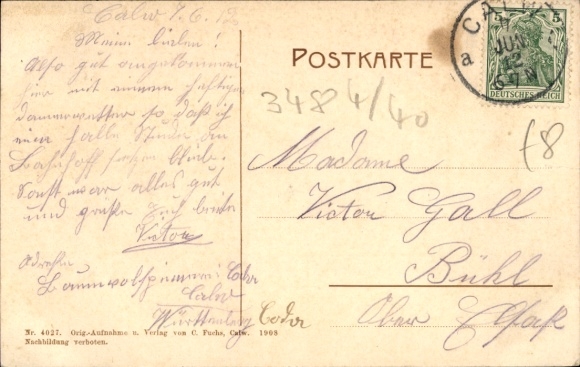 Calw 7.6.12
Meine lieben!
Also gut angekommen
hier mit einem heftigen
Donnerwetter so daß ich
eine halbe Stunde am
Bahnhoff sitzen blieb.
Sonst war alles gut
und grüße Euch beide
Victor
Adresse
Baumwolspinnerei
Calw
Württemberg
POSTKARTE
CALW
JUN.
12
a
5
5
DEUTSCHES REICH
3484/40
f8
Madame
Victor Gall
Bühl
Ober Elsaß
Nr. 4027. Orig.-Aufnahme u. Verlag von C. Fuchs, Calw. 1908
Nachbildung verboten.